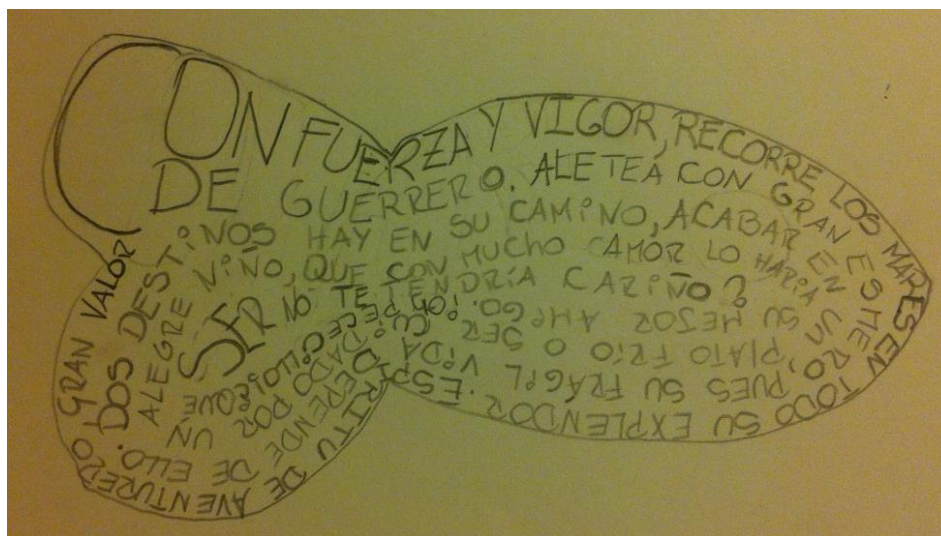 CON FUERZA Y VIGOR, RECORRE LOS MARES EN TODO SU EXPLENDOR. ESPÍRITU DE AVENTURERO, GRAN VALOR
DE GUERRERO. ALETEA CON GRAN ESMERO, PUES SU FRÁGIL VIDA DEPENDE DE ELLO. DOS DESTINOS
HAY EN SU CAMINO, ACABAR EN UN PLATO FRÍO O SER CUIDADO POR UN ALEGRE NIÑO,
QUE CON MUCHO AMOR LO HARÍA SU MEJOR AMIGO. ¡OH! PECECILLO ¿QUE
SER NO TE TENDRÍA CARIÑO?